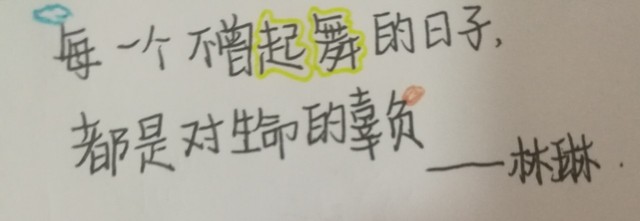 每一个不曾起舞的日子,
都是对生命的辜负
——林琳.